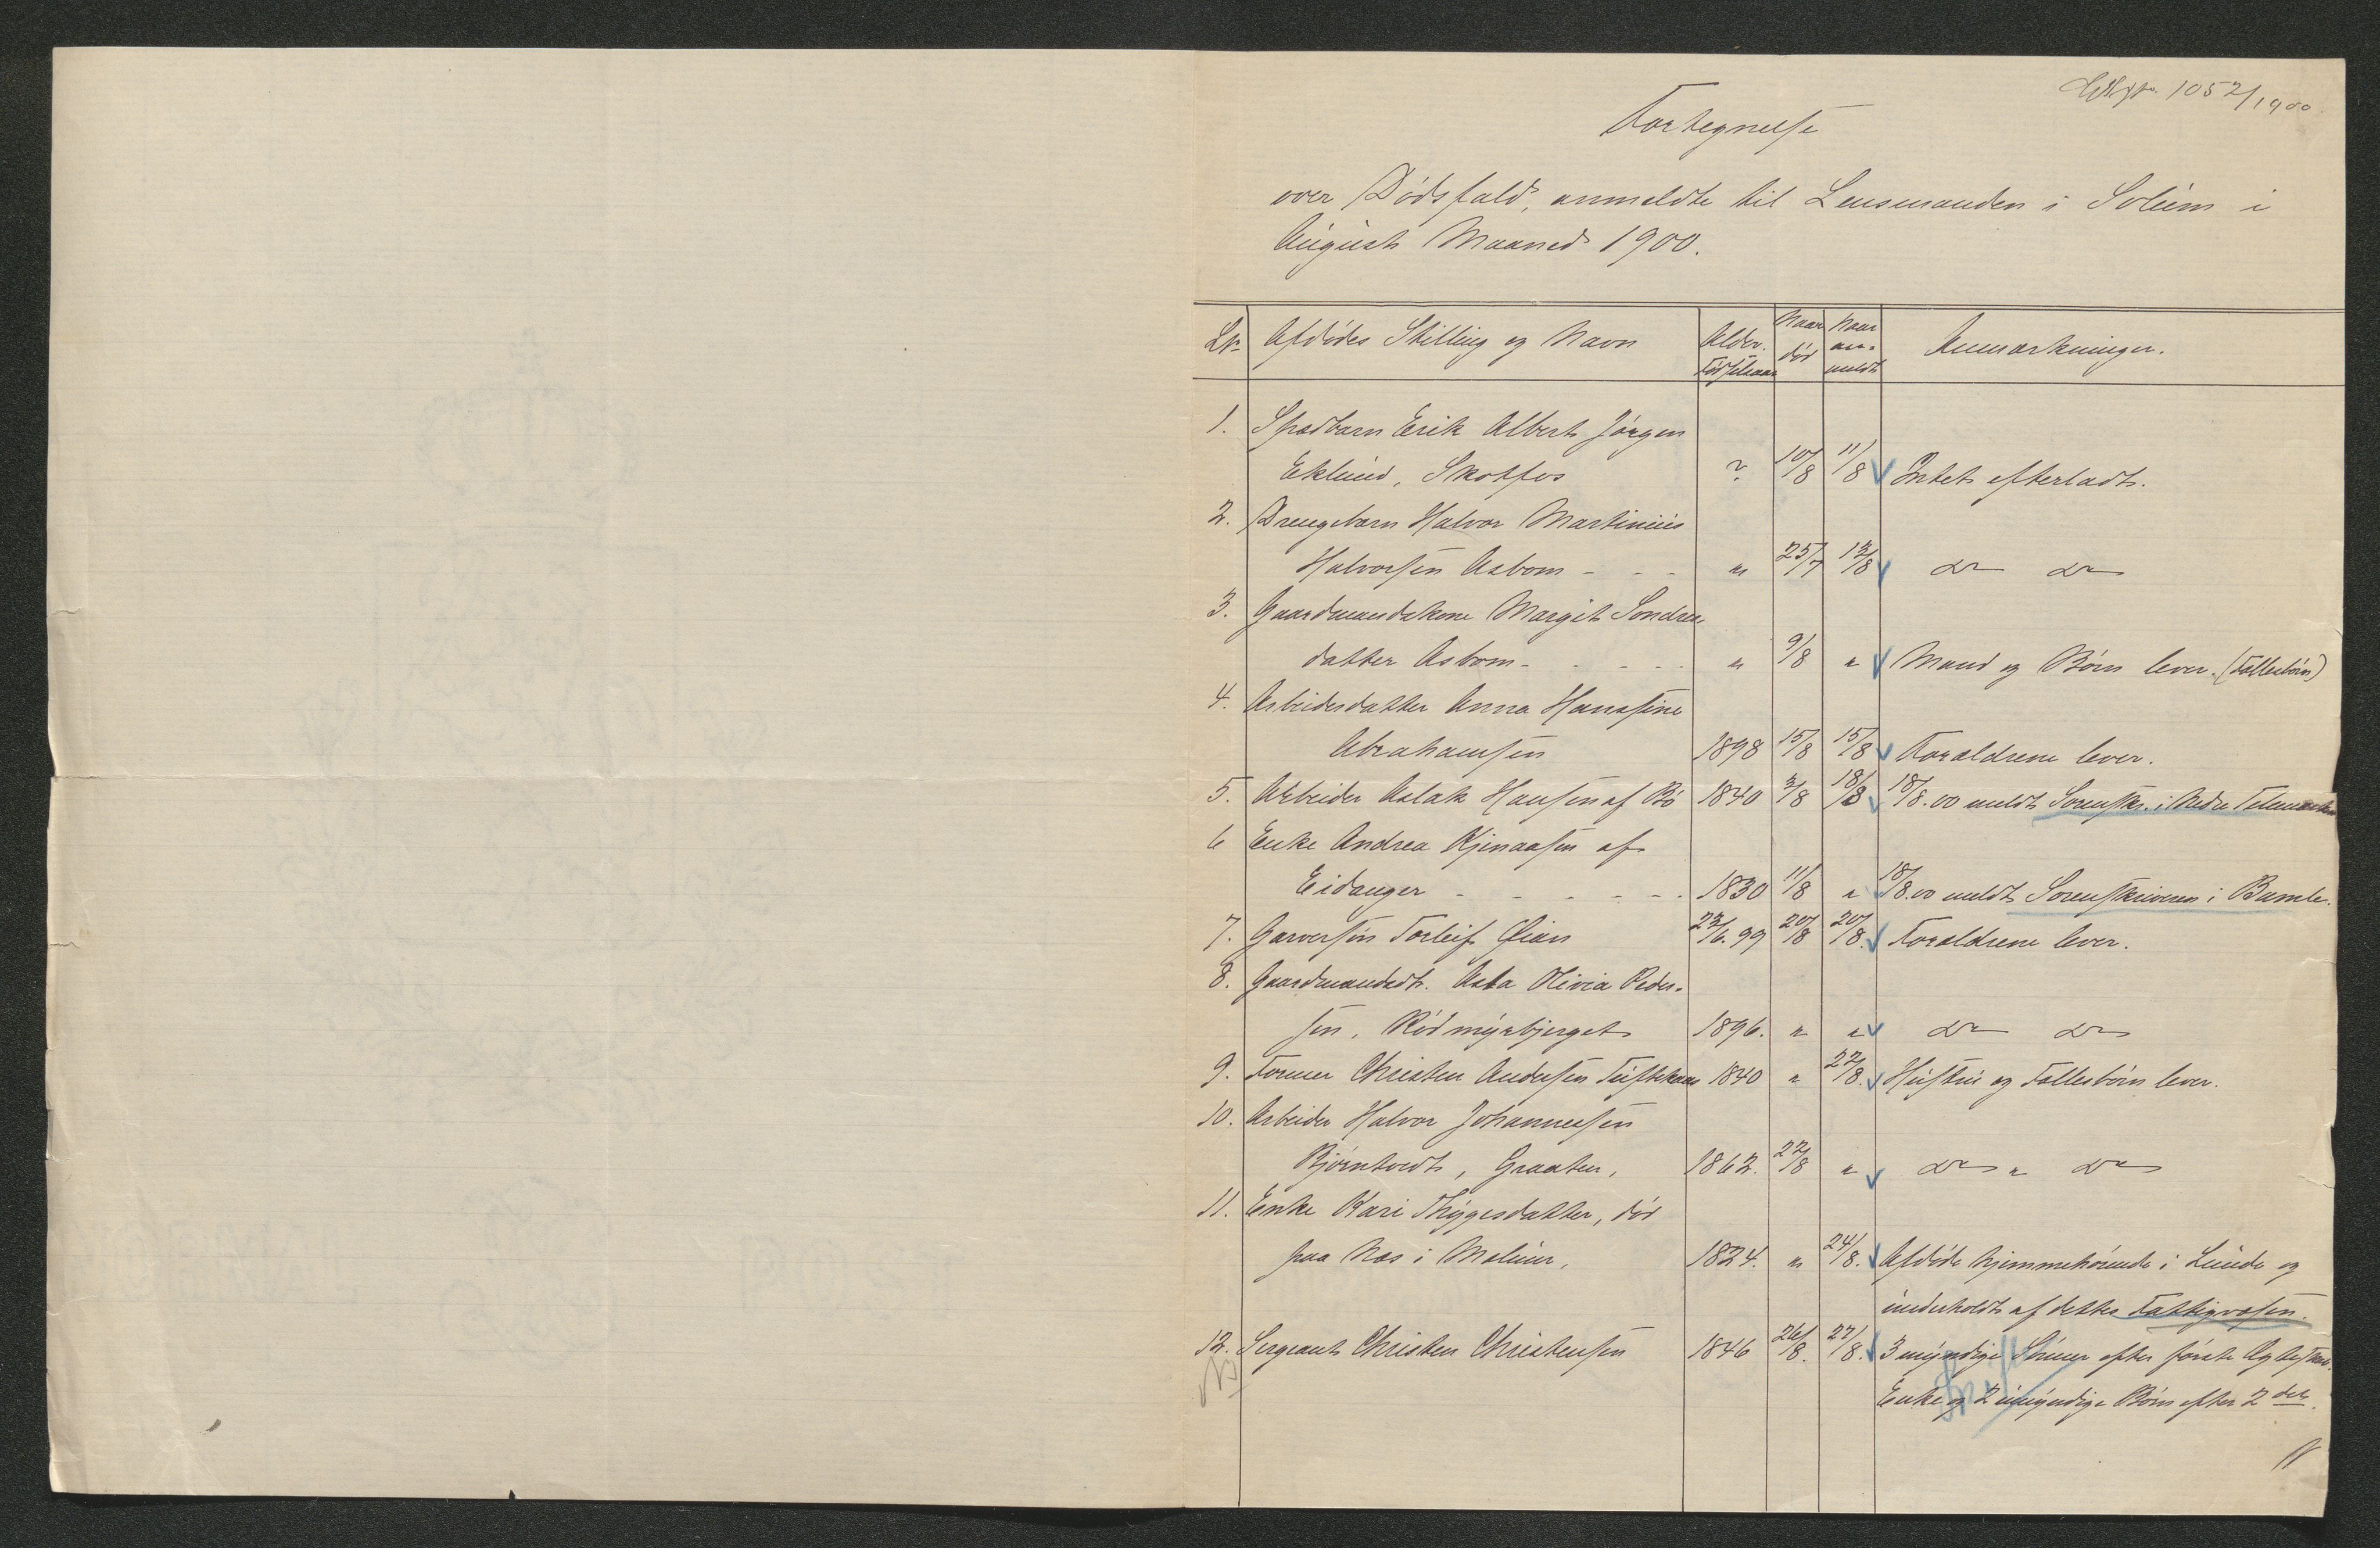 1052/1900.
Fortegnelse
over Dødsfald, anmeldte til Lensmanden i Solum i
August Maaned 1900.
Lnr. Afdødes Stilling og Navn Alder. Fødselsaar Naar død Naar an- meldt Anmærkninger.
1. Spædbarn Erik Albert Jørgen
Eklund, Skotfos ? 10/8 11/8 Intet efterladt.
2. Drengebarn Halvor Martinius
Halvorsen Aabom - - - " 25/7 13/8 do do
3. Gaardmandskone Margit Sondres-
datter Aabom - - - - - " 9/8 " Mand og Børn lever. (Fællesbørn)
4. Arbeiderdatter Anna Hansine
Abrahamsen 1898 15/8 15/8 Forældrene lever.
5. Arbeider Aslak Hansen af Bø 1840 3/8 18/8 18/8.00 meldt Sorenskr. i Nedre Telemarken
6 Enke Andrea Kjenaasen af
Eidanger - - - - - - 1830 11/8 " 18/8.00 meldt Sorenskriveren i Bamle.
7. Garversøn Torleif Øian 23/6.99 20/8 20/8. Forældrene lever.
8. Gaardmandsdt. Asta Olivia Peder-
sen, Rødmyrbjerget 1896. " " do do
9. Former Christen Andersen Tuftekaas 1840 " 22/8. Hustru og Fællesbørn lever.
10. Arbeider Halvor Johannessen
Bjørntvedt, Graaten, 1862. 22/8 " do " do
11. Enke Kari Thygesdatter, død
paa Næs i Melum, 1824. " 24/8. Afdøde hjemmehørende i Lunde og
underholdt af dettes Fattigvæsen.
12. Sergeant Christen Christensen 1846 26/8. 27/8. 3 myndige Sønner efter første Ægtesk.
Enke og 2 umyndige Børn efter 2det.